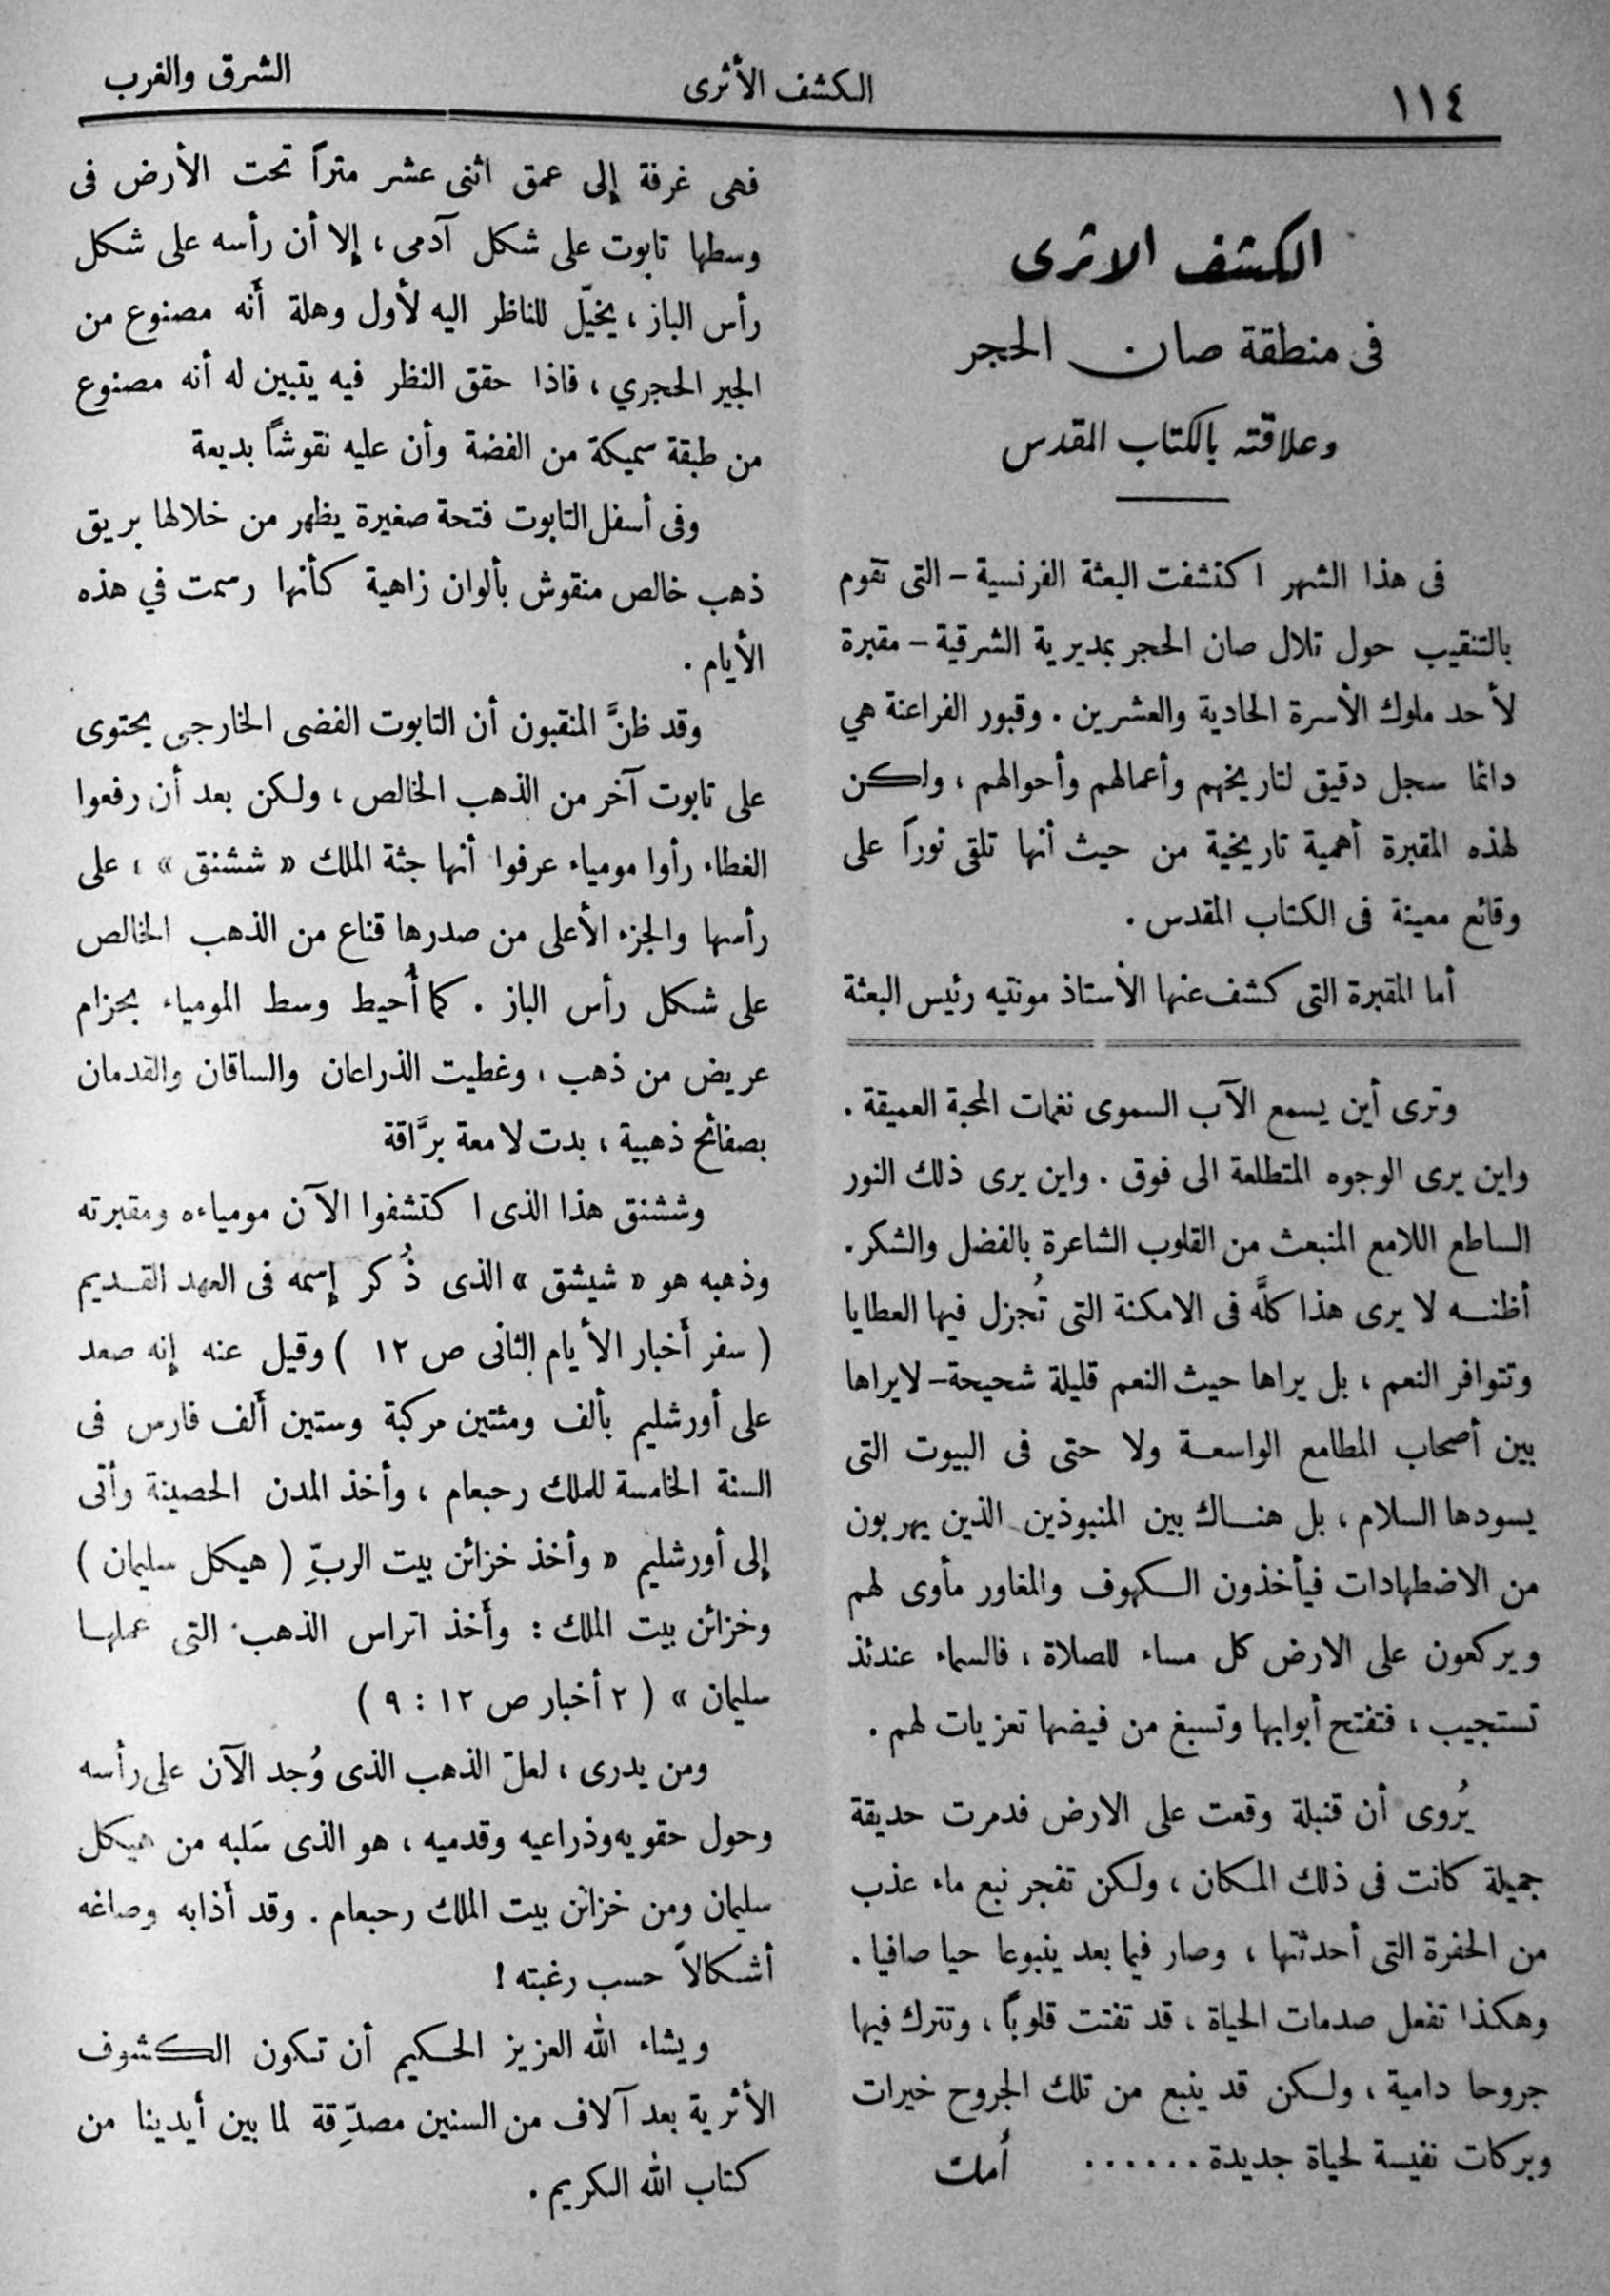 ١١٤
الكشف الأثرى
الشرق والغرب
الكشف الاثرى
فى منطقة صان الحجر
وعلاقته بالكتاب المقدس
فى هذا الشهر اكتشفت البعثة الفرنسية – التى تقوم
بالتنقيب حول تلال صان الحجر بمديرية الشرقية – مقبرة
لأحد ملوك الأسرة الحادية والعشرين . وقبور الفراعنة هي
دائما سجل دقيق لتاريخهم وأعمالهم وأحوالهم ، ولكن
لهذه المقبرة أهمية تاريخية من حيث أنها تلقى نوراً على
وقائع معينة فى الكتاب المقدس .
أما المقبرة التى كشف عنها الأستاذ مونتيه رئيس البعثة
فهى غرفة إلى عمق اثنى عشر متراً تحت الأرض فى
وسطها تابوت على شكل آدمى ، إلا أن رأسه على شكل
رأس الباز ، يخيّل للناظر اليه لأول وهلة أَنه مصنوع من
الجير الحجري ، فاذا حقق النظر فيه يتبين له أنه مصنوع
من طبقة سميكة من الفضة وأن عليه نقوشاً بديعة
وفى أسفل التابوت فتحة صغيرة يظهر من خلالها بريق
ذهب خالص منقوش بألوان زاهية كأنها رسمت في هذه
الأيام .
وقد ظنَّ المنقبون أن التابوت الفضى الخارجى يحتوى
على تابوت آخر من الذهب الخالص ، ولكن بعد أن رفعوا
الغطاء رأوا مومياء عرفوا أنها جثة الملك « ششنق » ، على
رأسها والجزء الأعلى من صدرها قناع من الذهب الخالص
على شكل رأس الباز . كما أُحيط وسط المومياء بحزام
عريض من ذهب ، وغطيت الذراعان والساقان والقدمان
بصفائح ذهبية ، بدت لامعة برَّاقة
وششنق هذا الذى اكتشفوا الآن مومياءه ومقبرته
وذهبه هو « شيشق » الذى ذُكر إسمه فى العهد القديم
( سفر أَخبار الأيام الثانى ص ١٢ ) وقيل عنه إنه صعد
على أورشليم بألف ومئتين مركبة وستين أَلف فارس فى
السنة الخامسة للملك رحبعام ، وأخذ المدن الحصينة وأتى
إلى أورشليم « وأخذ خزائن بيت الربِّ ( هيكل سليمان )
وخزائن بيت الملك : وأَخذ اتراس الذهب التى عملها
سليمان » ( ٢ أخبار ص ١٢ : ٩ )
ومن يدرى ، لعلّ الذهب الذى وُجد الآن على رأسه
وحول حقويه وذراعيه وقدميه ، هو الذى سَلبه من هيكل
سليمان ومن خزائن بيت الملك رحبعام . وقد أَذابه وصاغه
أشكالاً حسب رغبته !
ويشاء الله العزيز الحكيم أن تكون الكشوف
الأثرية بعد آلاف من السنين مصدِّقة لما بين أيدينا من
كتاب الله الكريم .
وترى أين يسمع الآب السموى نغمات المحبة العميقة .
واين يرى الوجوه المتطلعة الى فوق . واين يرى ذلك النور
الساطع اللامع المنبعث من القلوب الشاعرة بالفضل والشكر .
أظنه لا يرى هذا كلَّه فى الامكنة التى تُجزل فيها العطايا
وتتوافر النعم ، بل يراها حيث النعم قليلة شحيحة – لا يراها
بين أصحاب المطامع الواسعة ولا حتى فى البيوت التى
يسودها السلام ، بل هناك بين المنبوذين الذين يهربون
من الاضطهادات فيأخذون الكهوف والمغاور مأوى لهم
ويركعون على الارض كل مساء للصلاة ، فالسماء عندئذ
تستجيب ، فتفتح أبوابها وتسبغ من فيضها تعزيات لهم .
يُروى أن قنبلة وقعت على الارض فدمرت حديقة
جميلة كانت فى ذلك المكان ، ولكن تفجر نبع ماء عذب
من الحفرة التى أحدثتها ، وصار فيما بعد ينبوعا حيا صافيا .
وهكذا تفعل صدمات الحياة ، قد تفتت قلوباً ، وتترك فيها
جروحا دامية ، ولكن قد ينبع من تلك الجروح خيرات
وبركات نفيسة لحياة جديدة . . . . . .